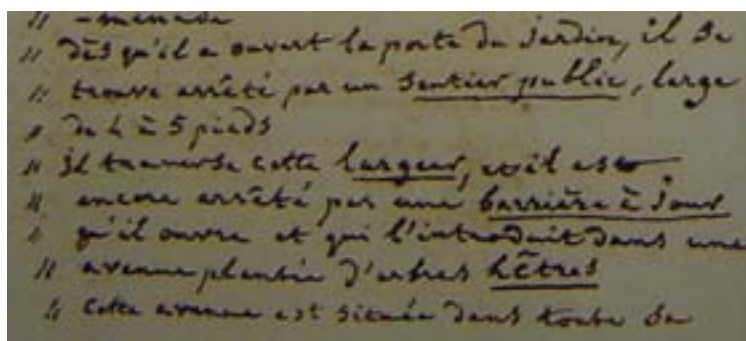 " -menade
" dès qu'il a ouvert la porte du jardin, il se
" trouve arrêté par un sentier public, large
" de 4 à 5 pieds
" il traverse cette largeur, et il est
" encore arrêté par une barrière à jour
" qu'il ouvre et qui l'introduit dans une
" avenue plantée d'arbres hêtres
" cette avenue est située dans toute sa